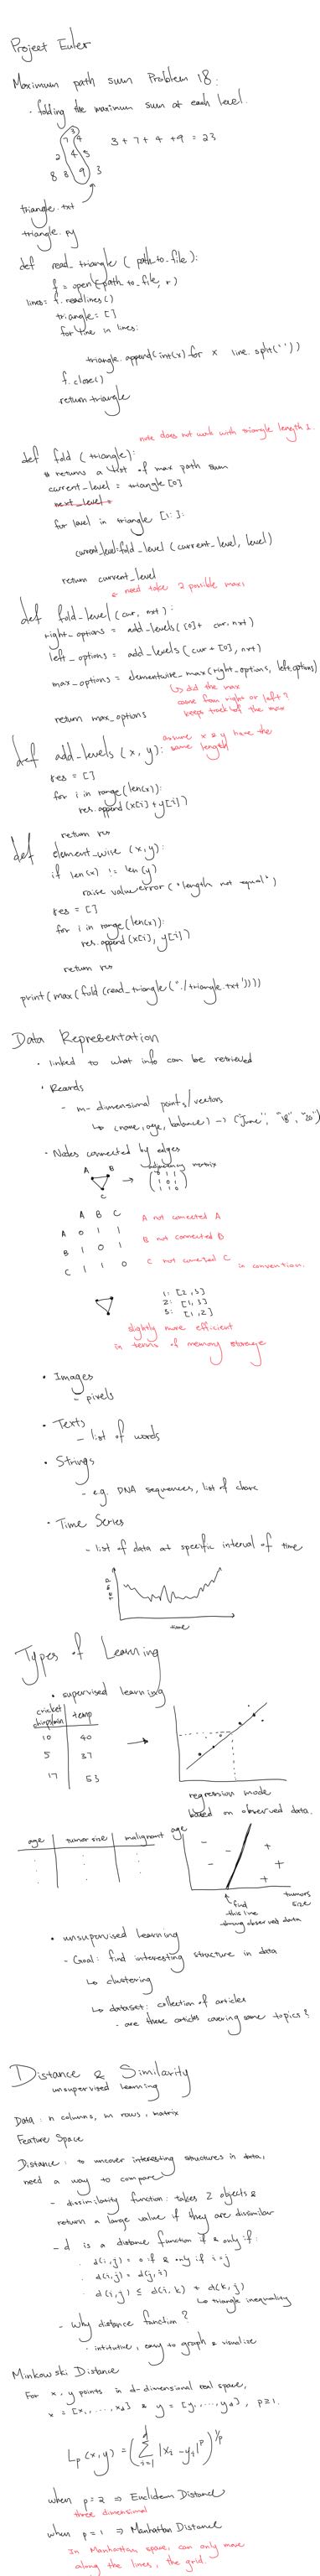 Project Euler
Maximum path sum Problem 18:
- folding the maximum sum at each level.
3
7 4
2 4 5
8 8 9 3
3 + 7 + 4 + 9 = 23
triangle.txt
triangle.py
def read_triangle (path_to_file):
f = open (path_to_file, r)
lines = f.readlines()
triangle = []
for line in lines:
triangle.append(int(x) for x line.split(' '))
f.close()
return triangle
note does not work with triangle length 1.
def fold (triangle):
# returns a list of max path sum
current_level = triangle [0]
next_level =
for level in triangle [1:]:
current_level = fold_level (current_level, level)
return current_level
need take 2 possible maxs
def fold_level (cur, nxt):
right_options = add_levels([0] + cur, nxt)
left_options = add_levels (cur + [0], nxt)
max_options = elementwise_max(right_options, left_options)
↳ did the max
come from right or left?
keeps track of the max
return max_options
assume x & y have the
same length
def add_levels (x, y):
res = []
for i in range (len(x)):
res.append (x[i] + y[i])
return res
def element_wise (x,y):
if len(x) != len(y)
raise valueerror ("length not equal")
res = []
for i in range (len(x)):
res.append (x[i], y[i])
return res
print(max(fold (read_triangle ("./triangle.txt'))))
Data Representation
- linked to what info can be retrieved
- Records
- m-dimensional points/vectors
↳ (name, age, balance) → ("June", "18", "20")
- Nodes connected by edges
A B
C
→
adjacency matrix
0 1 1
1 0 1
1 1 0
A B C
A 0 1 1
B 1 0 1
C 1 1 0
A not connected A
B not connected B
C not connected C
in convention.
1: [2,3]
2: [1,3]
3: [1,2]
slightly more efficient
in terms of memory storage
• Images
- pixels
• Texts
- list of words
• Strings
- e.g. DNA sequences, list of chars
• Time Series
- list of data at specific interval of time
time
Types of Learning
• supervised learning
cricket
chirps/min temp
10 40
5 37
17 53
→
regression mode
based on observed data.
age tumor size malignant
age
- - -
+ + +
tumors
size
↑ find
this line
thrug observed data
• unsupervised learning
- Goal: find interesting structure in data
↳ clustering
↳ dataset: collection of articles
- are these articles covering same topics?
Distance & Similarity
unsupervised learning
Data: n columns, m rows, matrix
Feature Space
Distance: to uncover interesting structures in data,
need a way to compare
- dissimilarity function: takes 2 objects &
return a large value if they are dissimilar
- d is a distance function if & only if:
· d(i,j) = 0 if & only if i=j
· d(i,j) = d(j,i)
· d(i,j) ≤ d(i,k) + d(k,j)
↳ triangle inequality
- Why distance function?
· intuitive, easy to graph & visualize
Minkowski Distance
For x, y points in d-dimensional real space,
x = [x₁,...,x_d] & y = [y₁,...,y_d], p≥1.
L_p(x,y) = (∑_{i=1}^{d} |x_i - y_i|^p)^{1/p}
when p = 2 ⇒ Euclidean Distance
three dimensional
when p = 1 ⇒ Manhattan Distance
In Manhattan space, can only move
along the lines, the grid.